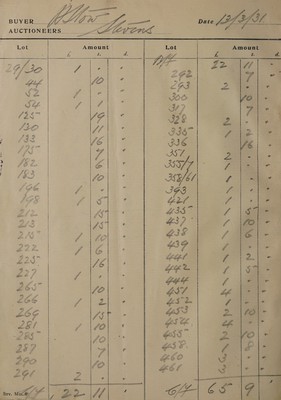 BUYER B Stow Date 13/3/31
AUCTIONEERS Stevens
Lot Amount Lot Amount
£ s. d. £ s. d.
B/f 22 11 -
29/30 1 - -
44 10 -
52 1 - -
54 1 1 -
125 19 -
130 11 -
133 16 -
175 7 -
182 6 -
183 10 -
196 1 - -
198 1 5 -
212 15 -
213 15 -
215 1 10 -
222 1 6 -
225 16 -
227 1 - -
265 10 -
266 1 2 -
269 15 -
281 1 10 -
285 10 -
287 7 -
290 10 -
291 2 - -
22 11 -
292 7 -
293 2 - -
300 10 -
317 7 -
328 2 - -
335 1 2 -
336 16 -
351 2 - -
355/7 1 - -
358/61 1 - -
393 1 - -
421 1 - -
435 1 5 -
437 1 10 -
438 1 6 -
439 1 - -
441 1 2 -
442 1 5 -
444 1 - -
451 4 - -
452 1 - -
453 2 10 -
454 4 - -
455 2 10 -
458 1 8 -
460 3 - -
461 3 - -
65 9 -